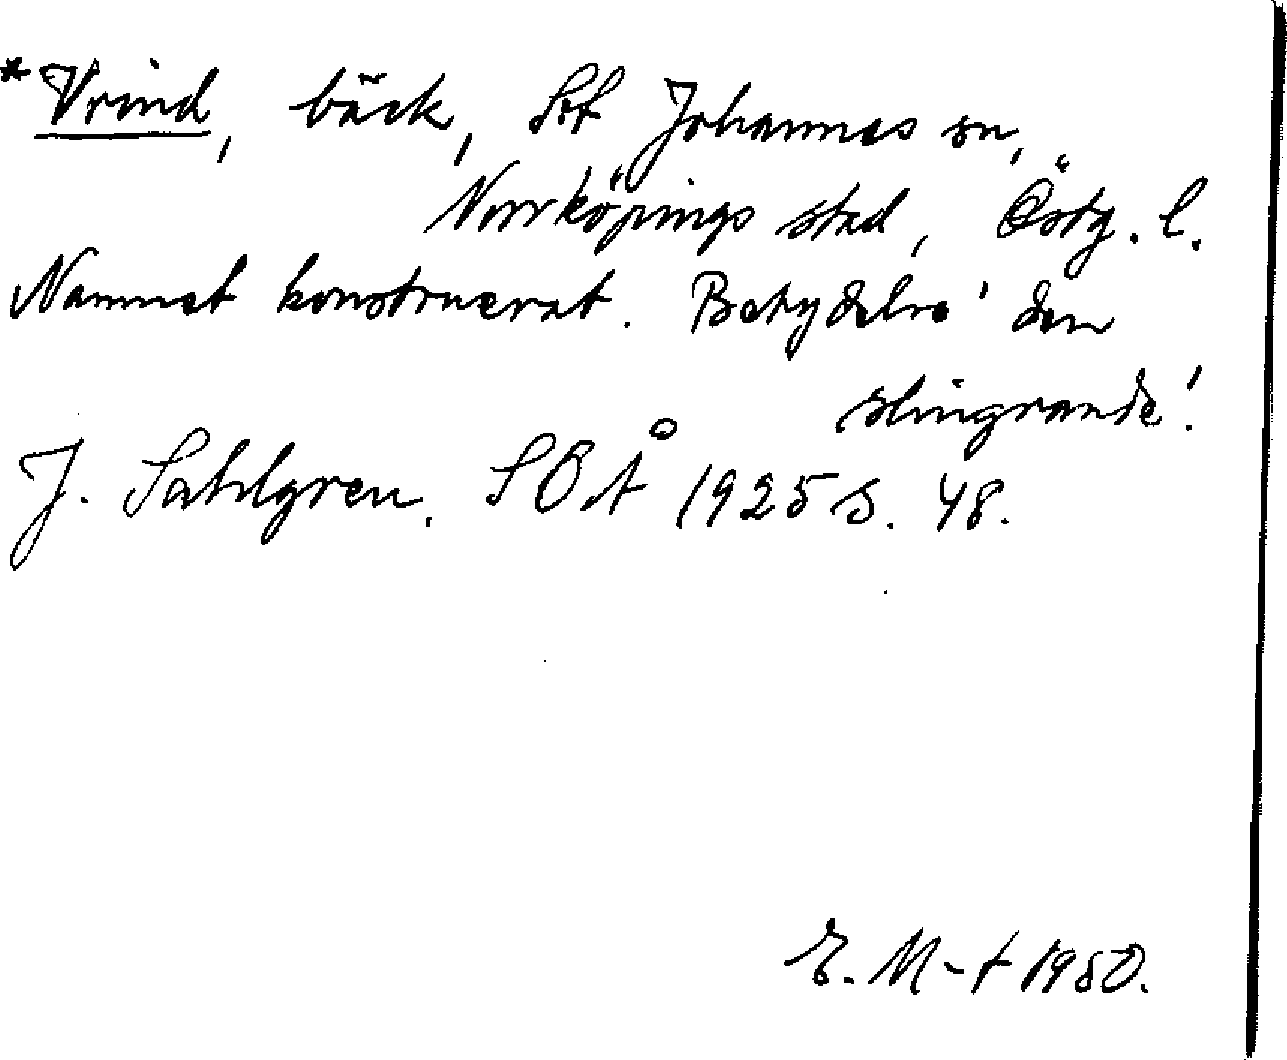 *Vrind, bäck, S:t Johannes sn,
Norrköpings stad, Östg. l.
Namnet konstruerat. Betydelse 'den
slingrande'.
J. Sahlgren. SOÅ 1925 s. 48.
E. M-t 1950.